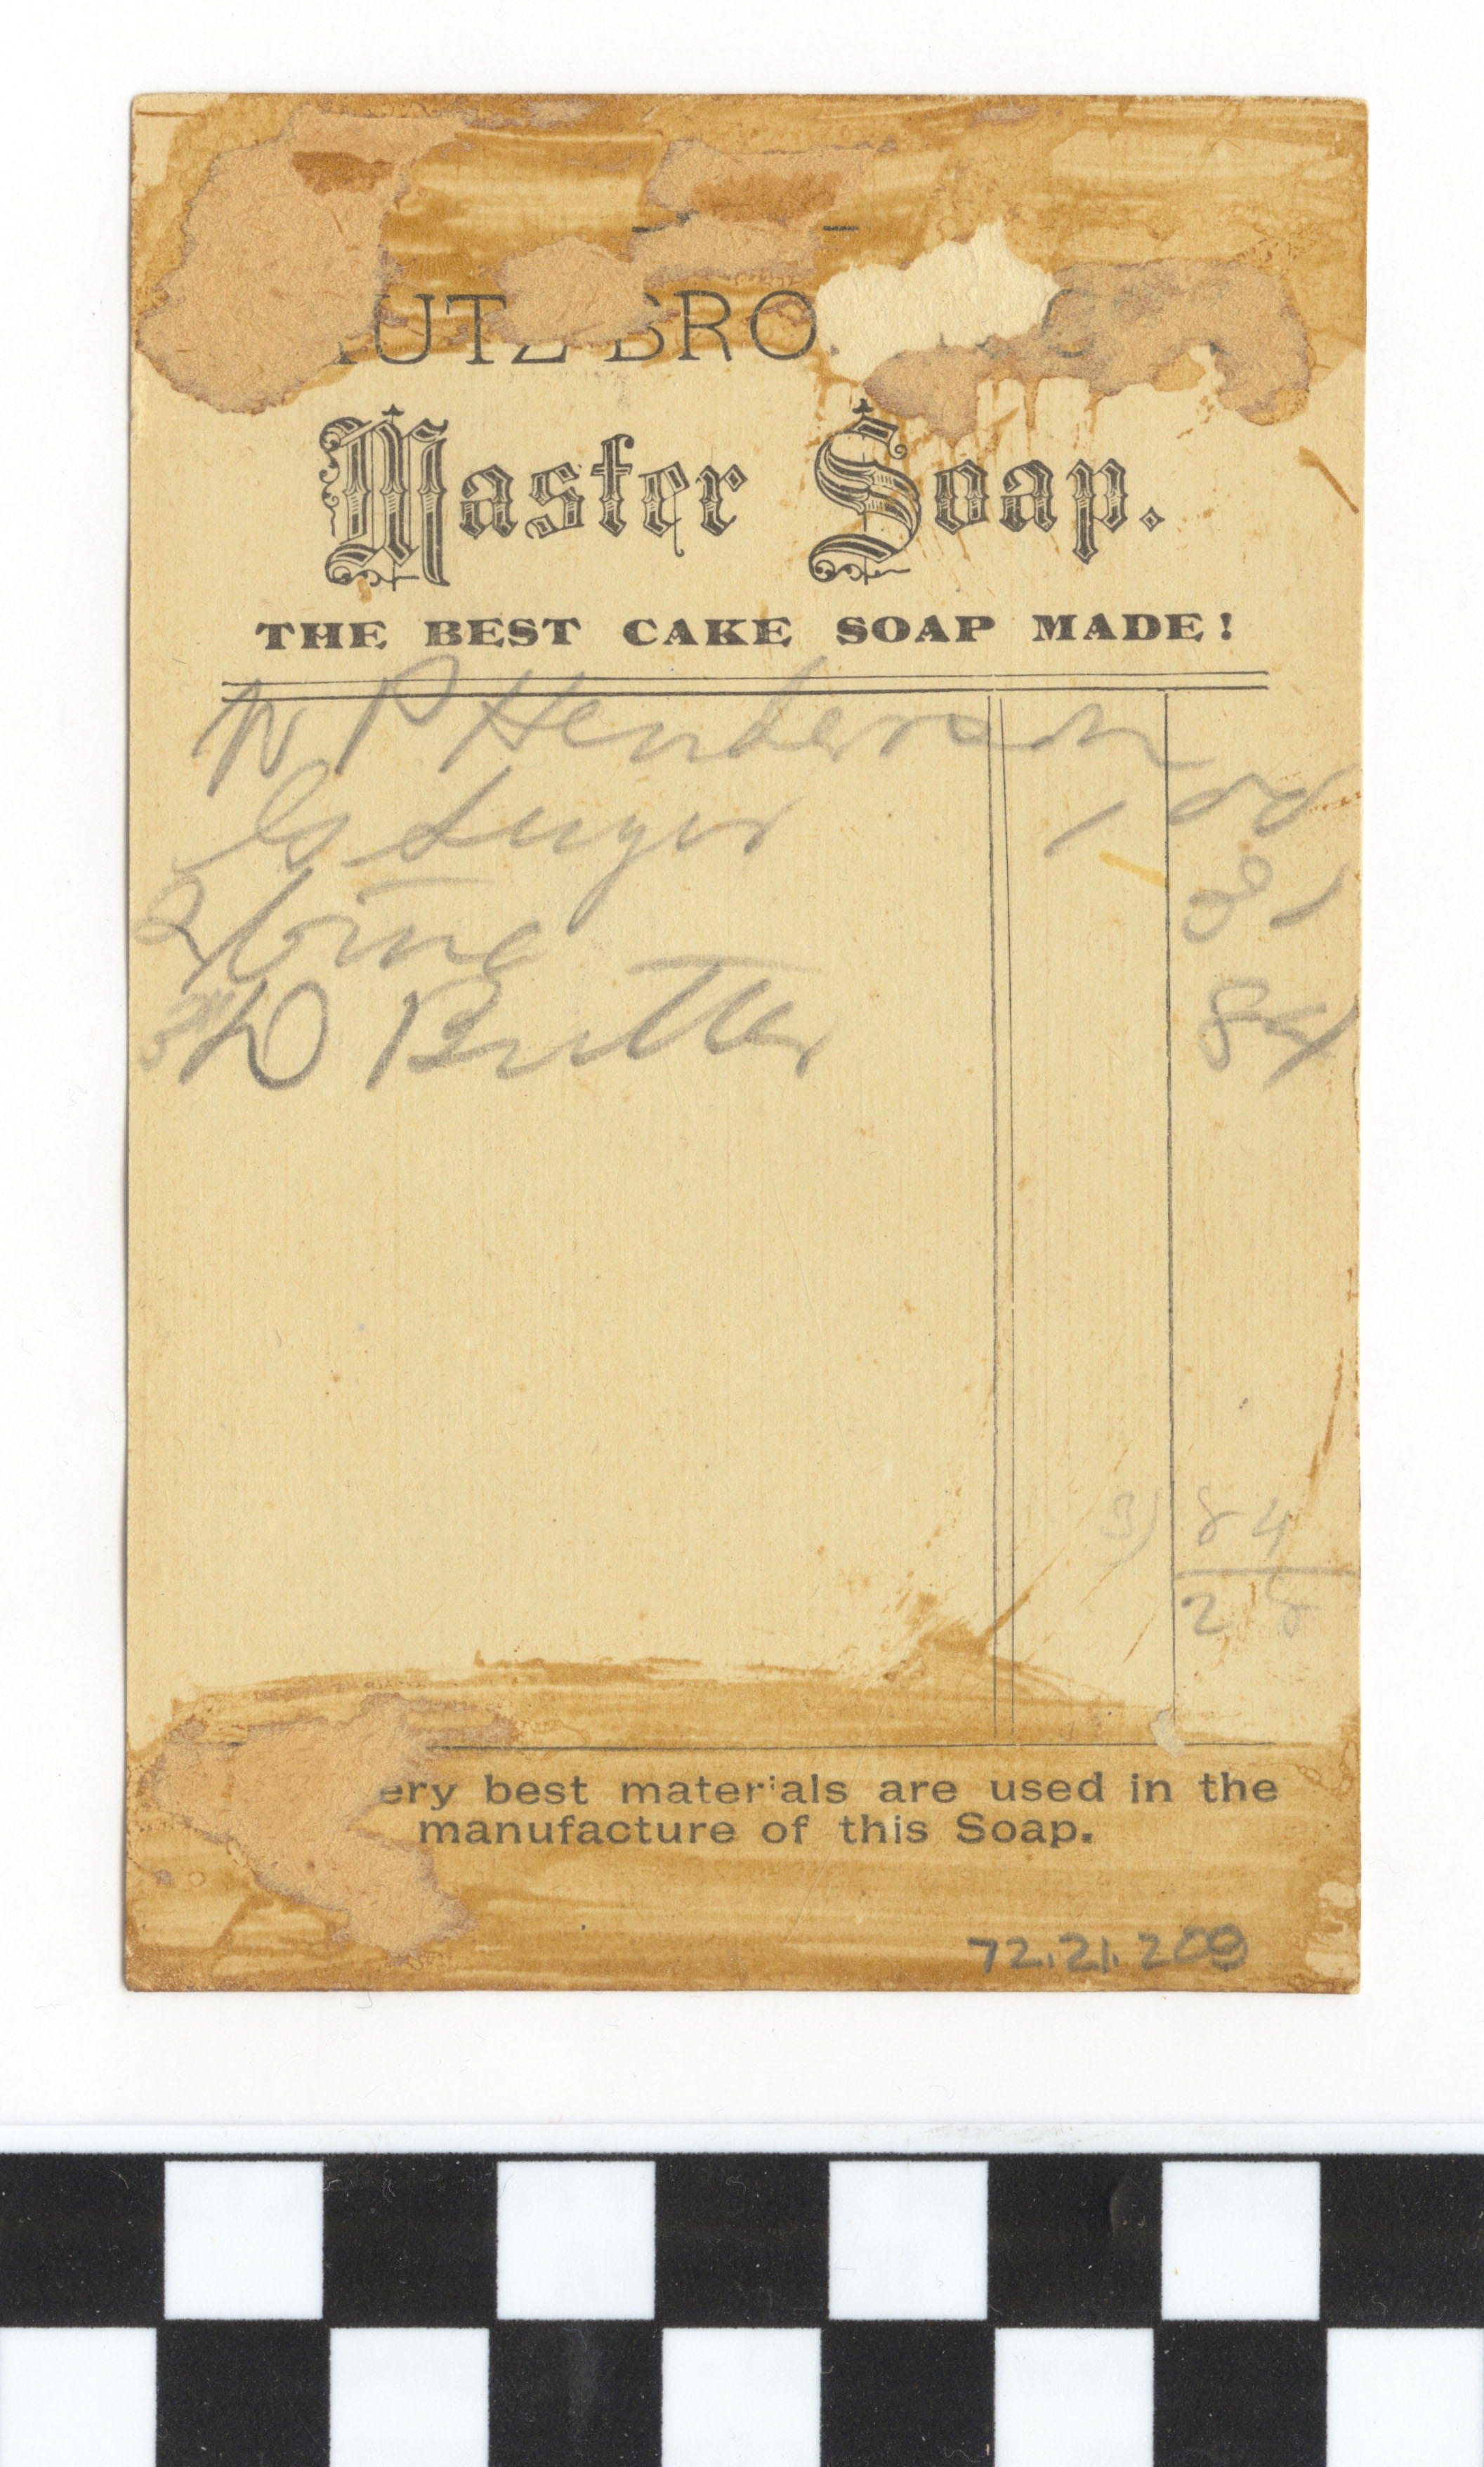 BRO
Master Soap.
THE BEST CAKE SOAP MADE!
W P Henderson
1 00
31
Butter 84
3) 84
28
ery best materials are used in the
manufacture of this Soap.
72.21.209